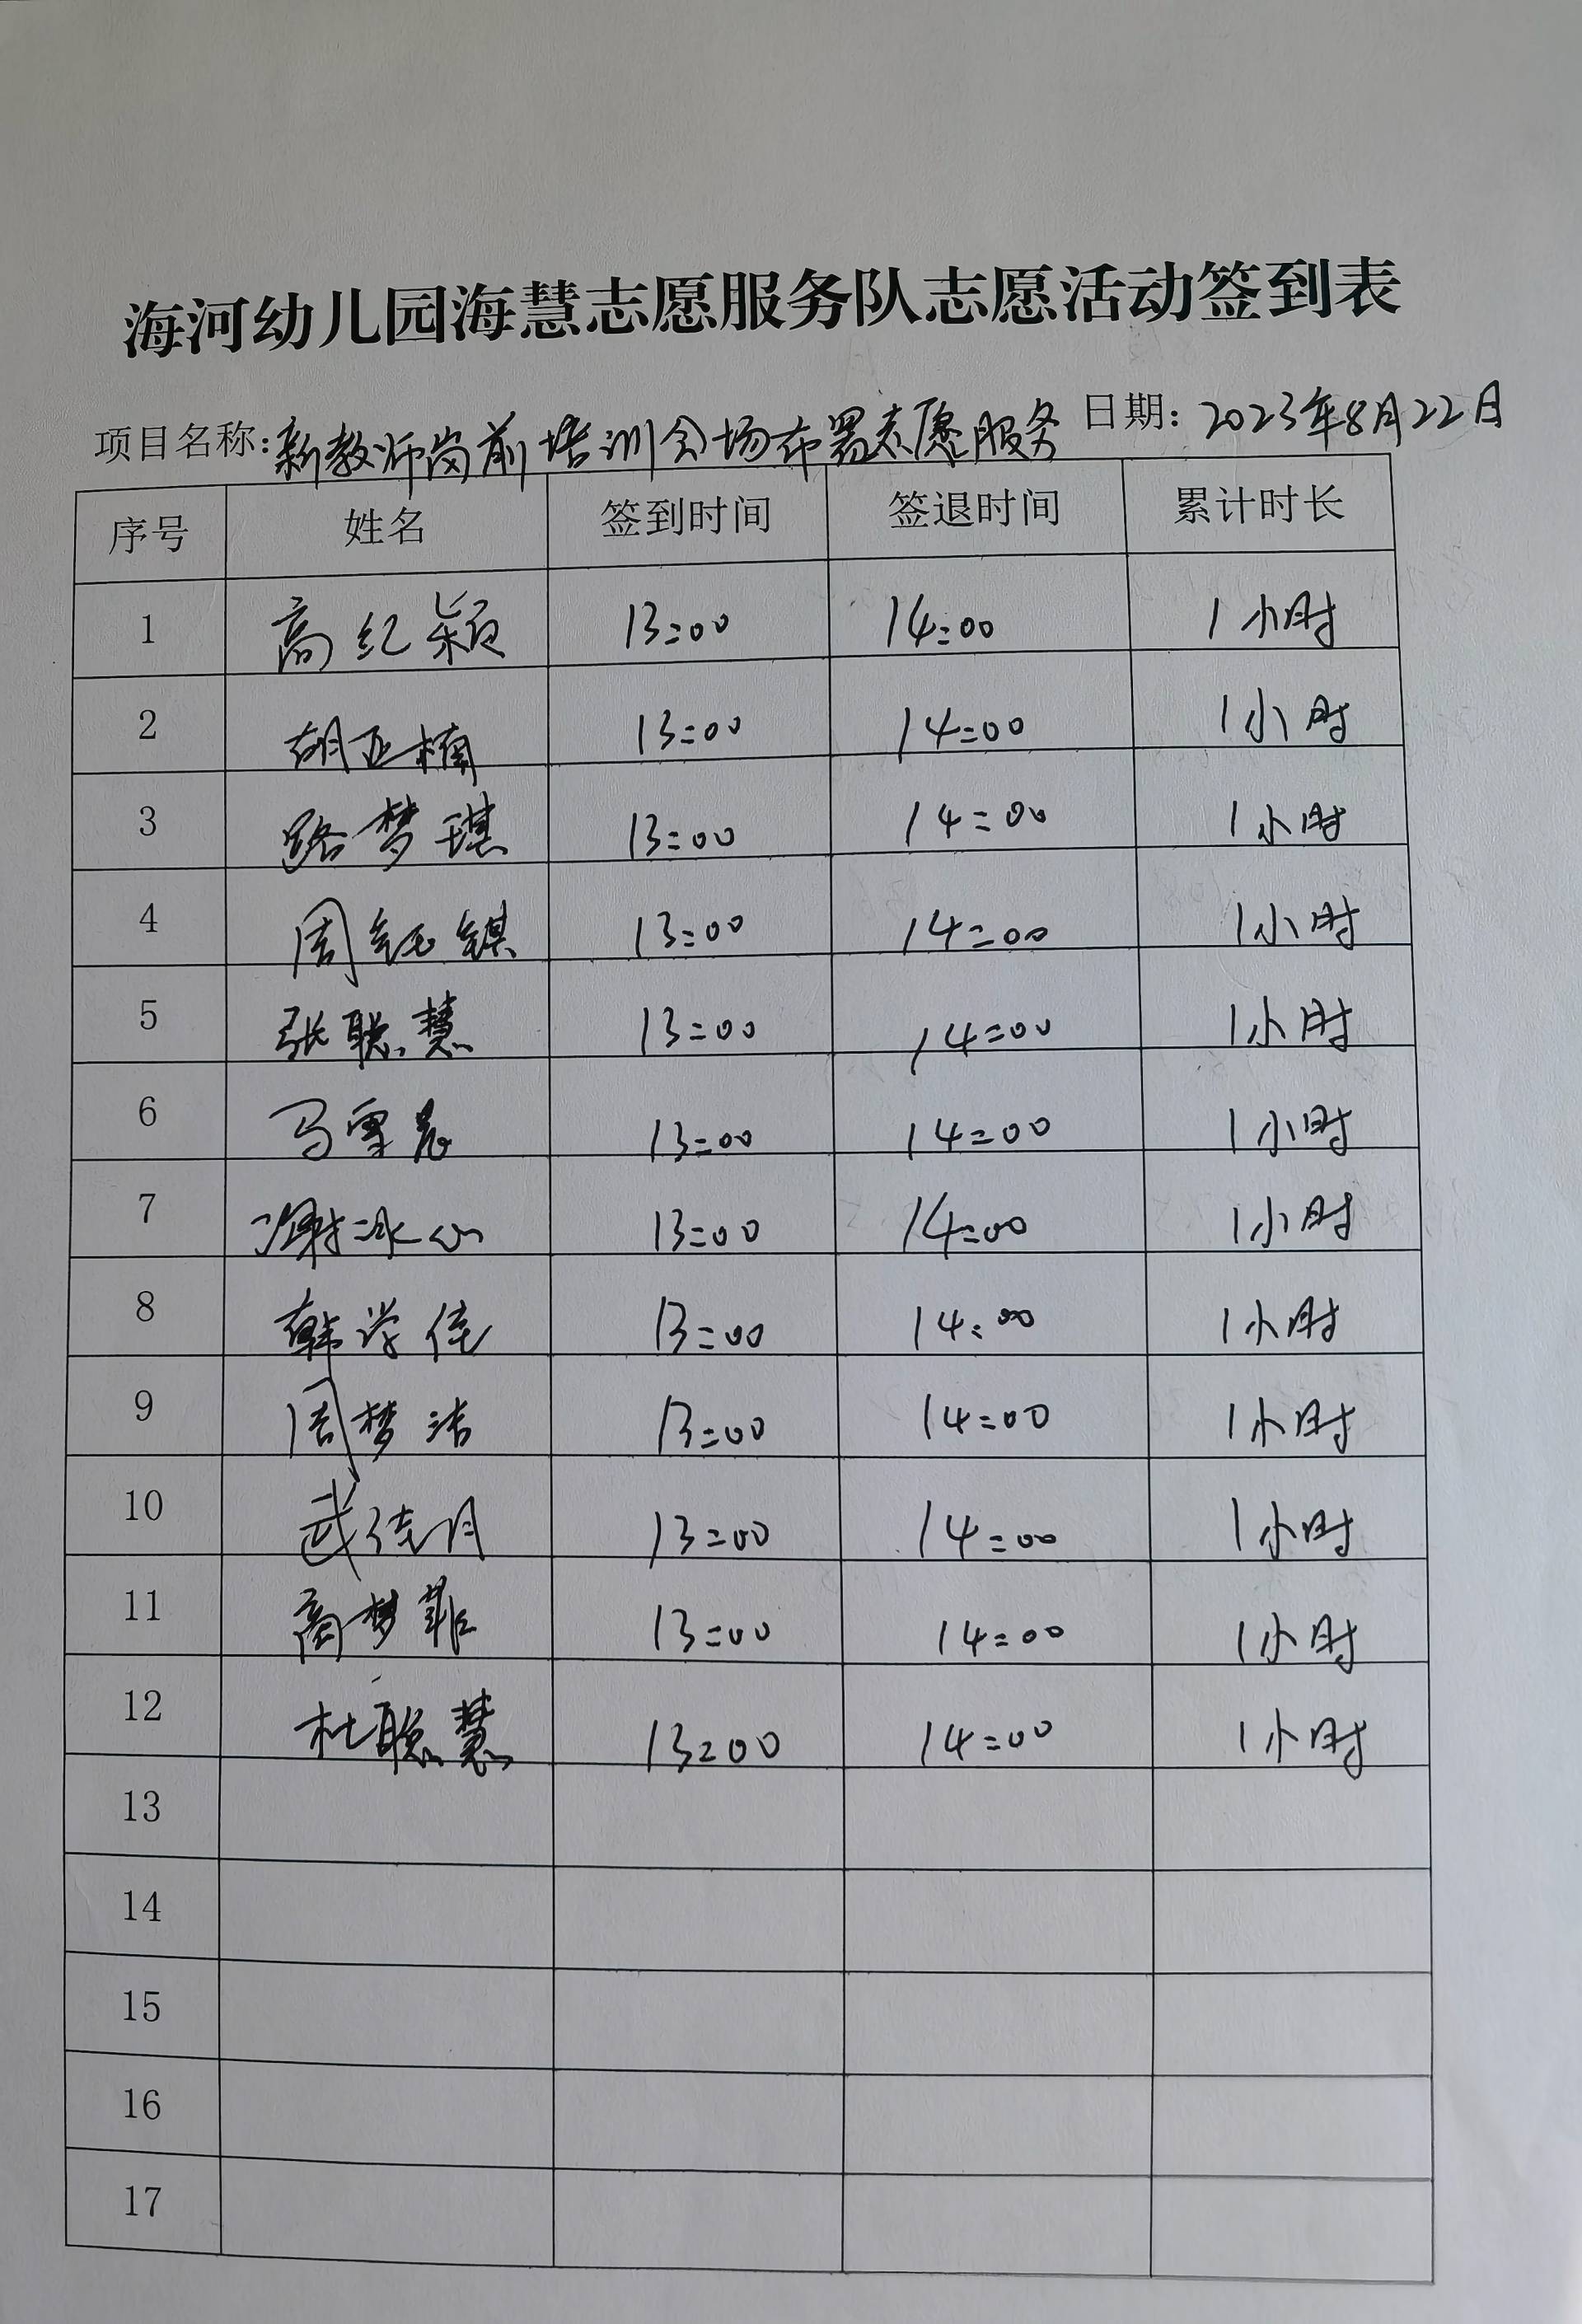 海河幼儿园海慧志愿服务队志愿活动签到表
项目名称:新教师岗前培训会场布署志愿服务 日期: 2023年8月22日
序号 姓名 签到时间 签退时间 累计时长
1 高纪颖 13:00 14:00 1小时
2 胡亚楠 13:00 14:00 1小时
3 路梦琪 13:00 14:00 1小时
4 周钰镁 13:00 14:00 1小时
5 张聪慧 13:00 14:00 1小时
6 马雪 13:00 14:00 1小时
7 谢冰心 13:00 14:00 1小时
8 韩学佳 13:00 14:00 1小时
9 周梦洁 13:00 14:00 1小时
10 武佳月 13:00 14:00 1小时
11 高梦菲 13:00 14:00 1小时
12 杜聪慧 13:00 14:00 1小时
13
14
15
16
17